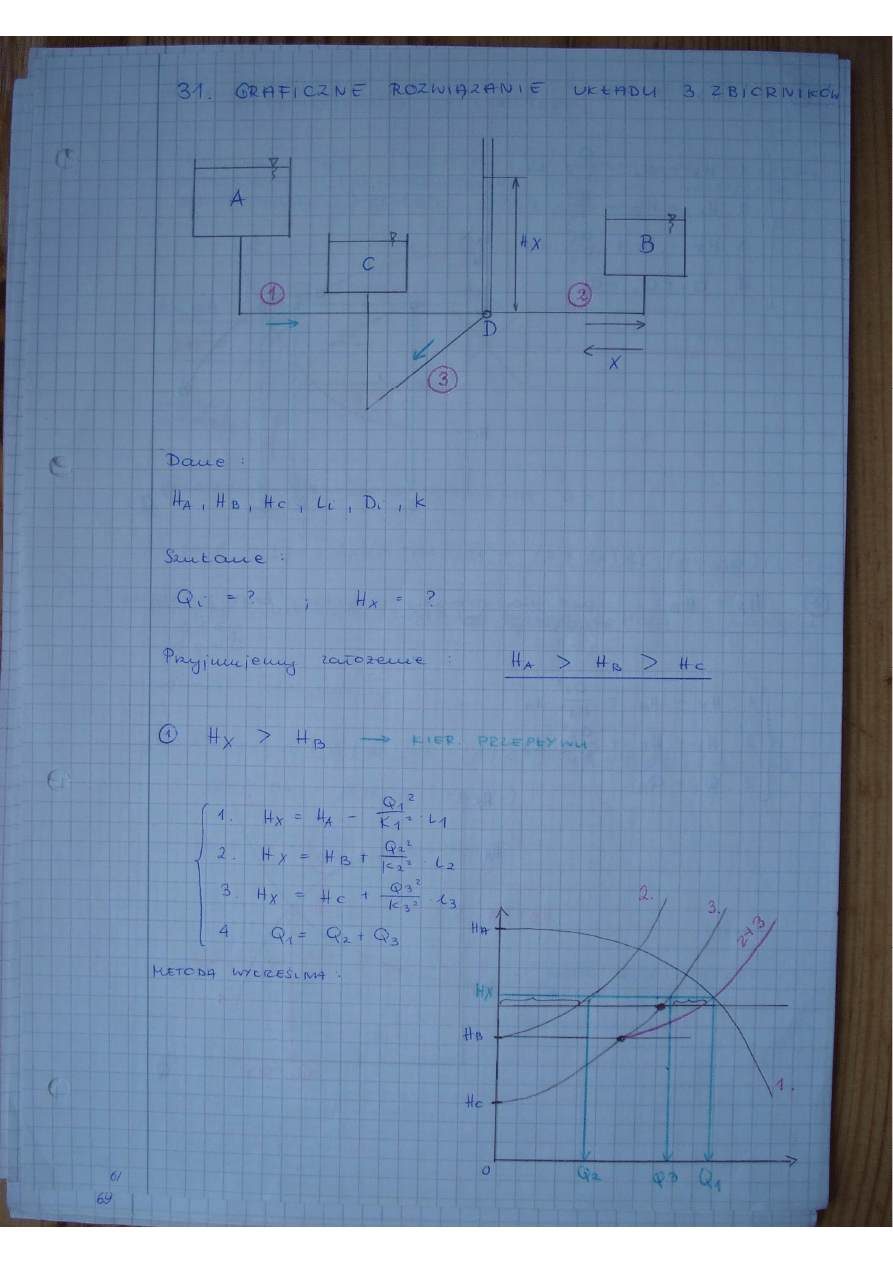 31. GRAFICZNE ROZWIĄZANIE UKŁADU 3 ZBIORNIKÓW
A
C
HX
B
1
2
D
3
X
Dane :
HA , HB , HC , Li , Di , K
Szukane :
Qi = ? ; HX = ?
Przyjmujemy założenie : HA > HB > HC
1 HX > HB → KIER. PRZEPŁYWU
1. HX = HA - Q1²/K1² · L1
2. HX = HB + Q2²/K2² · L2
3. HX = HC + Q3²/K3² · L3
4 Q1 = Q2 + Q3
METODA WYKREŚLNA :
2.
3.
2+3
HA
HX
HB
1.
HC
0
Q2 Q3 Q1
61
69